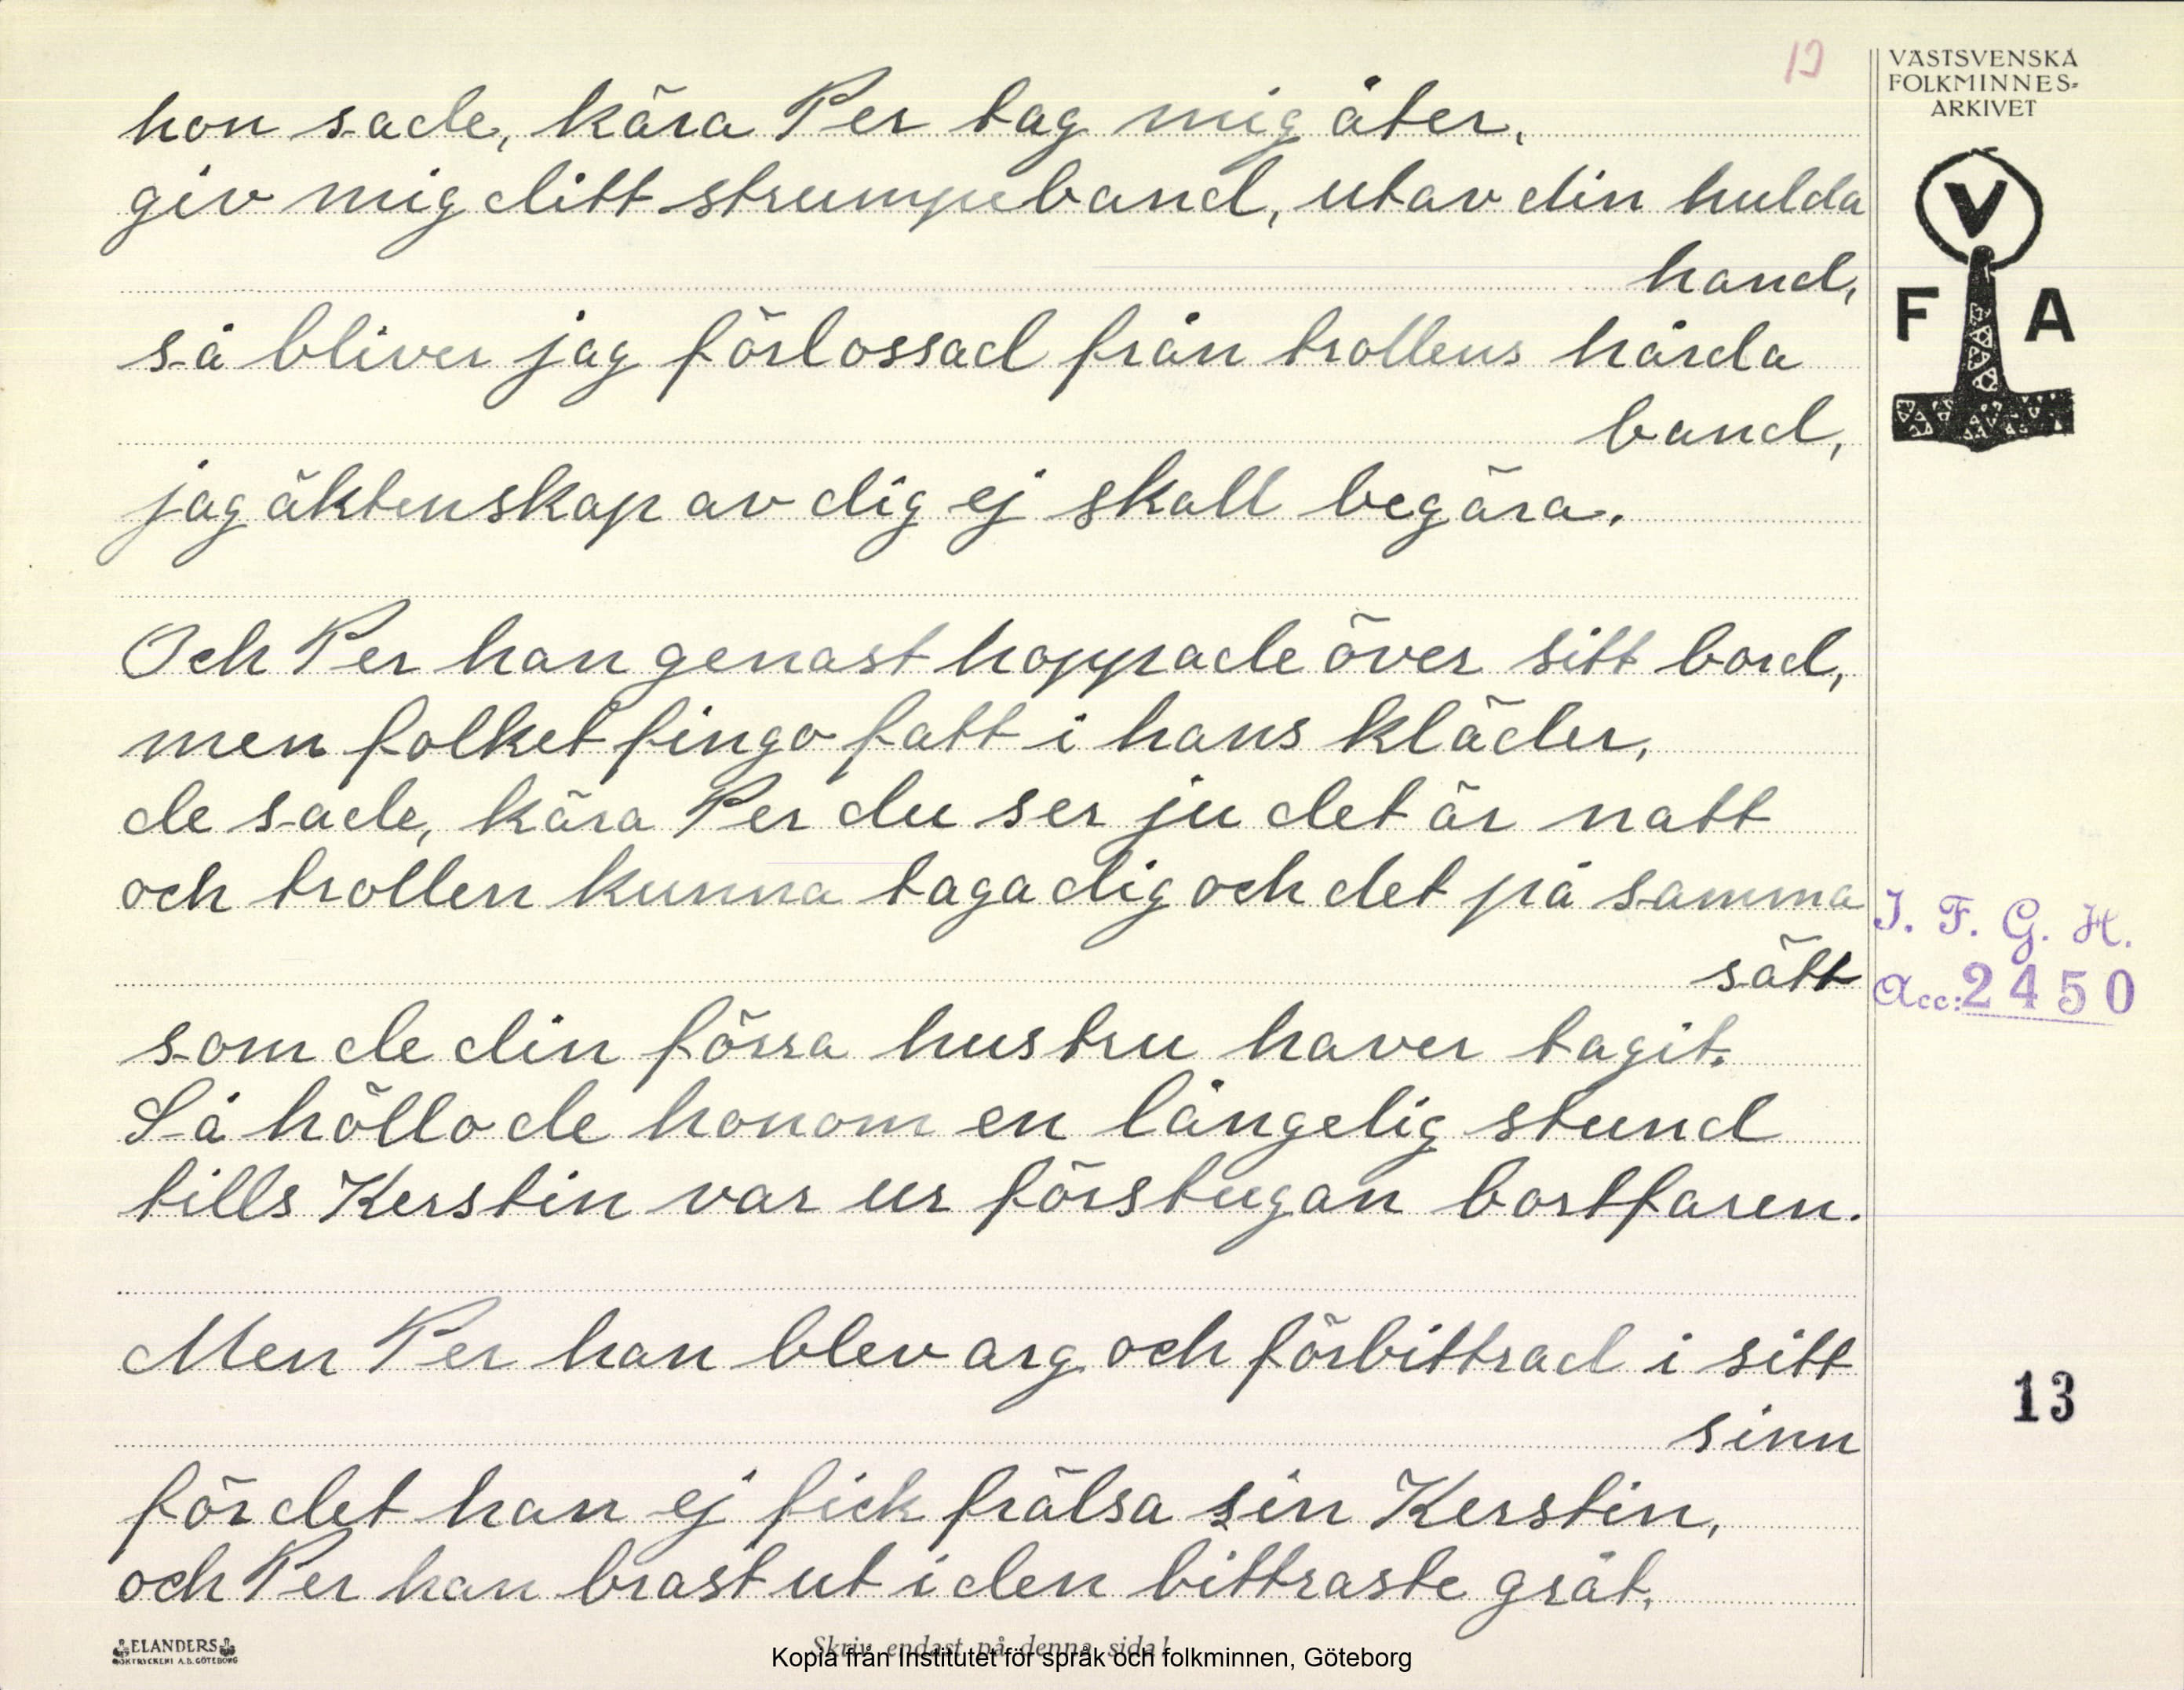 19
VÄSTSVENSKA
FOLKMINNES-
ARKIVET
V
F A
hon sade, kära Per tag mig åter,
giv mig ditt strumpeband, utav din hulda
hand,
så bliver jag förlossad från trollens hårda
band,
jag äktenskap av dig ej skall begära.
Och Per han genast hoppade över sitt bord,
men folket fingo fatt i hans kläder,
de sade, kära Per du ser ju det är natt
och trollen kunna taga dig och det på samma
sätt
som de din förra hustru haver tagit.
Så höllo de honom en långelig stund
tills Kerstin var ur förstugan bortfaren.
I. F. G. H.
Acc: 2450
Men Per han blev arg och förbittrad i sitt
sinn
för det han ej fick frälsa sin Kerstin,
och Per han brast ut i den bittraste gråt,
13
ELANDERS
BOKTRYCKERI A.B. GÖTEBORG
Skriv endast på denna sida!
Kopia från Institutet för språk och folkminnen, Göteborg